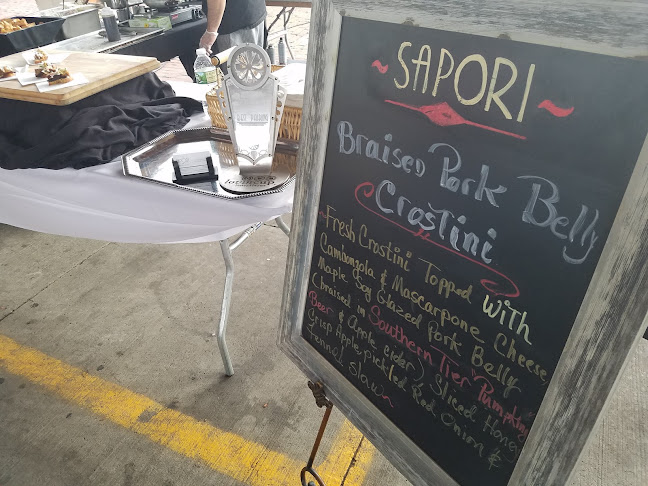 SAPORI
Braised Pork Belly
Crostini
Fresh Crostini Topped with
Cambonzola & Mascarpone Cheese,
Maple Soy Glazed Pork Belly
(braised in Southern Tier "Pumpkin"
Beer & Apple cider), Sliced Honey
Crisp Apple, pickled Red Onion &
Fennel slaw